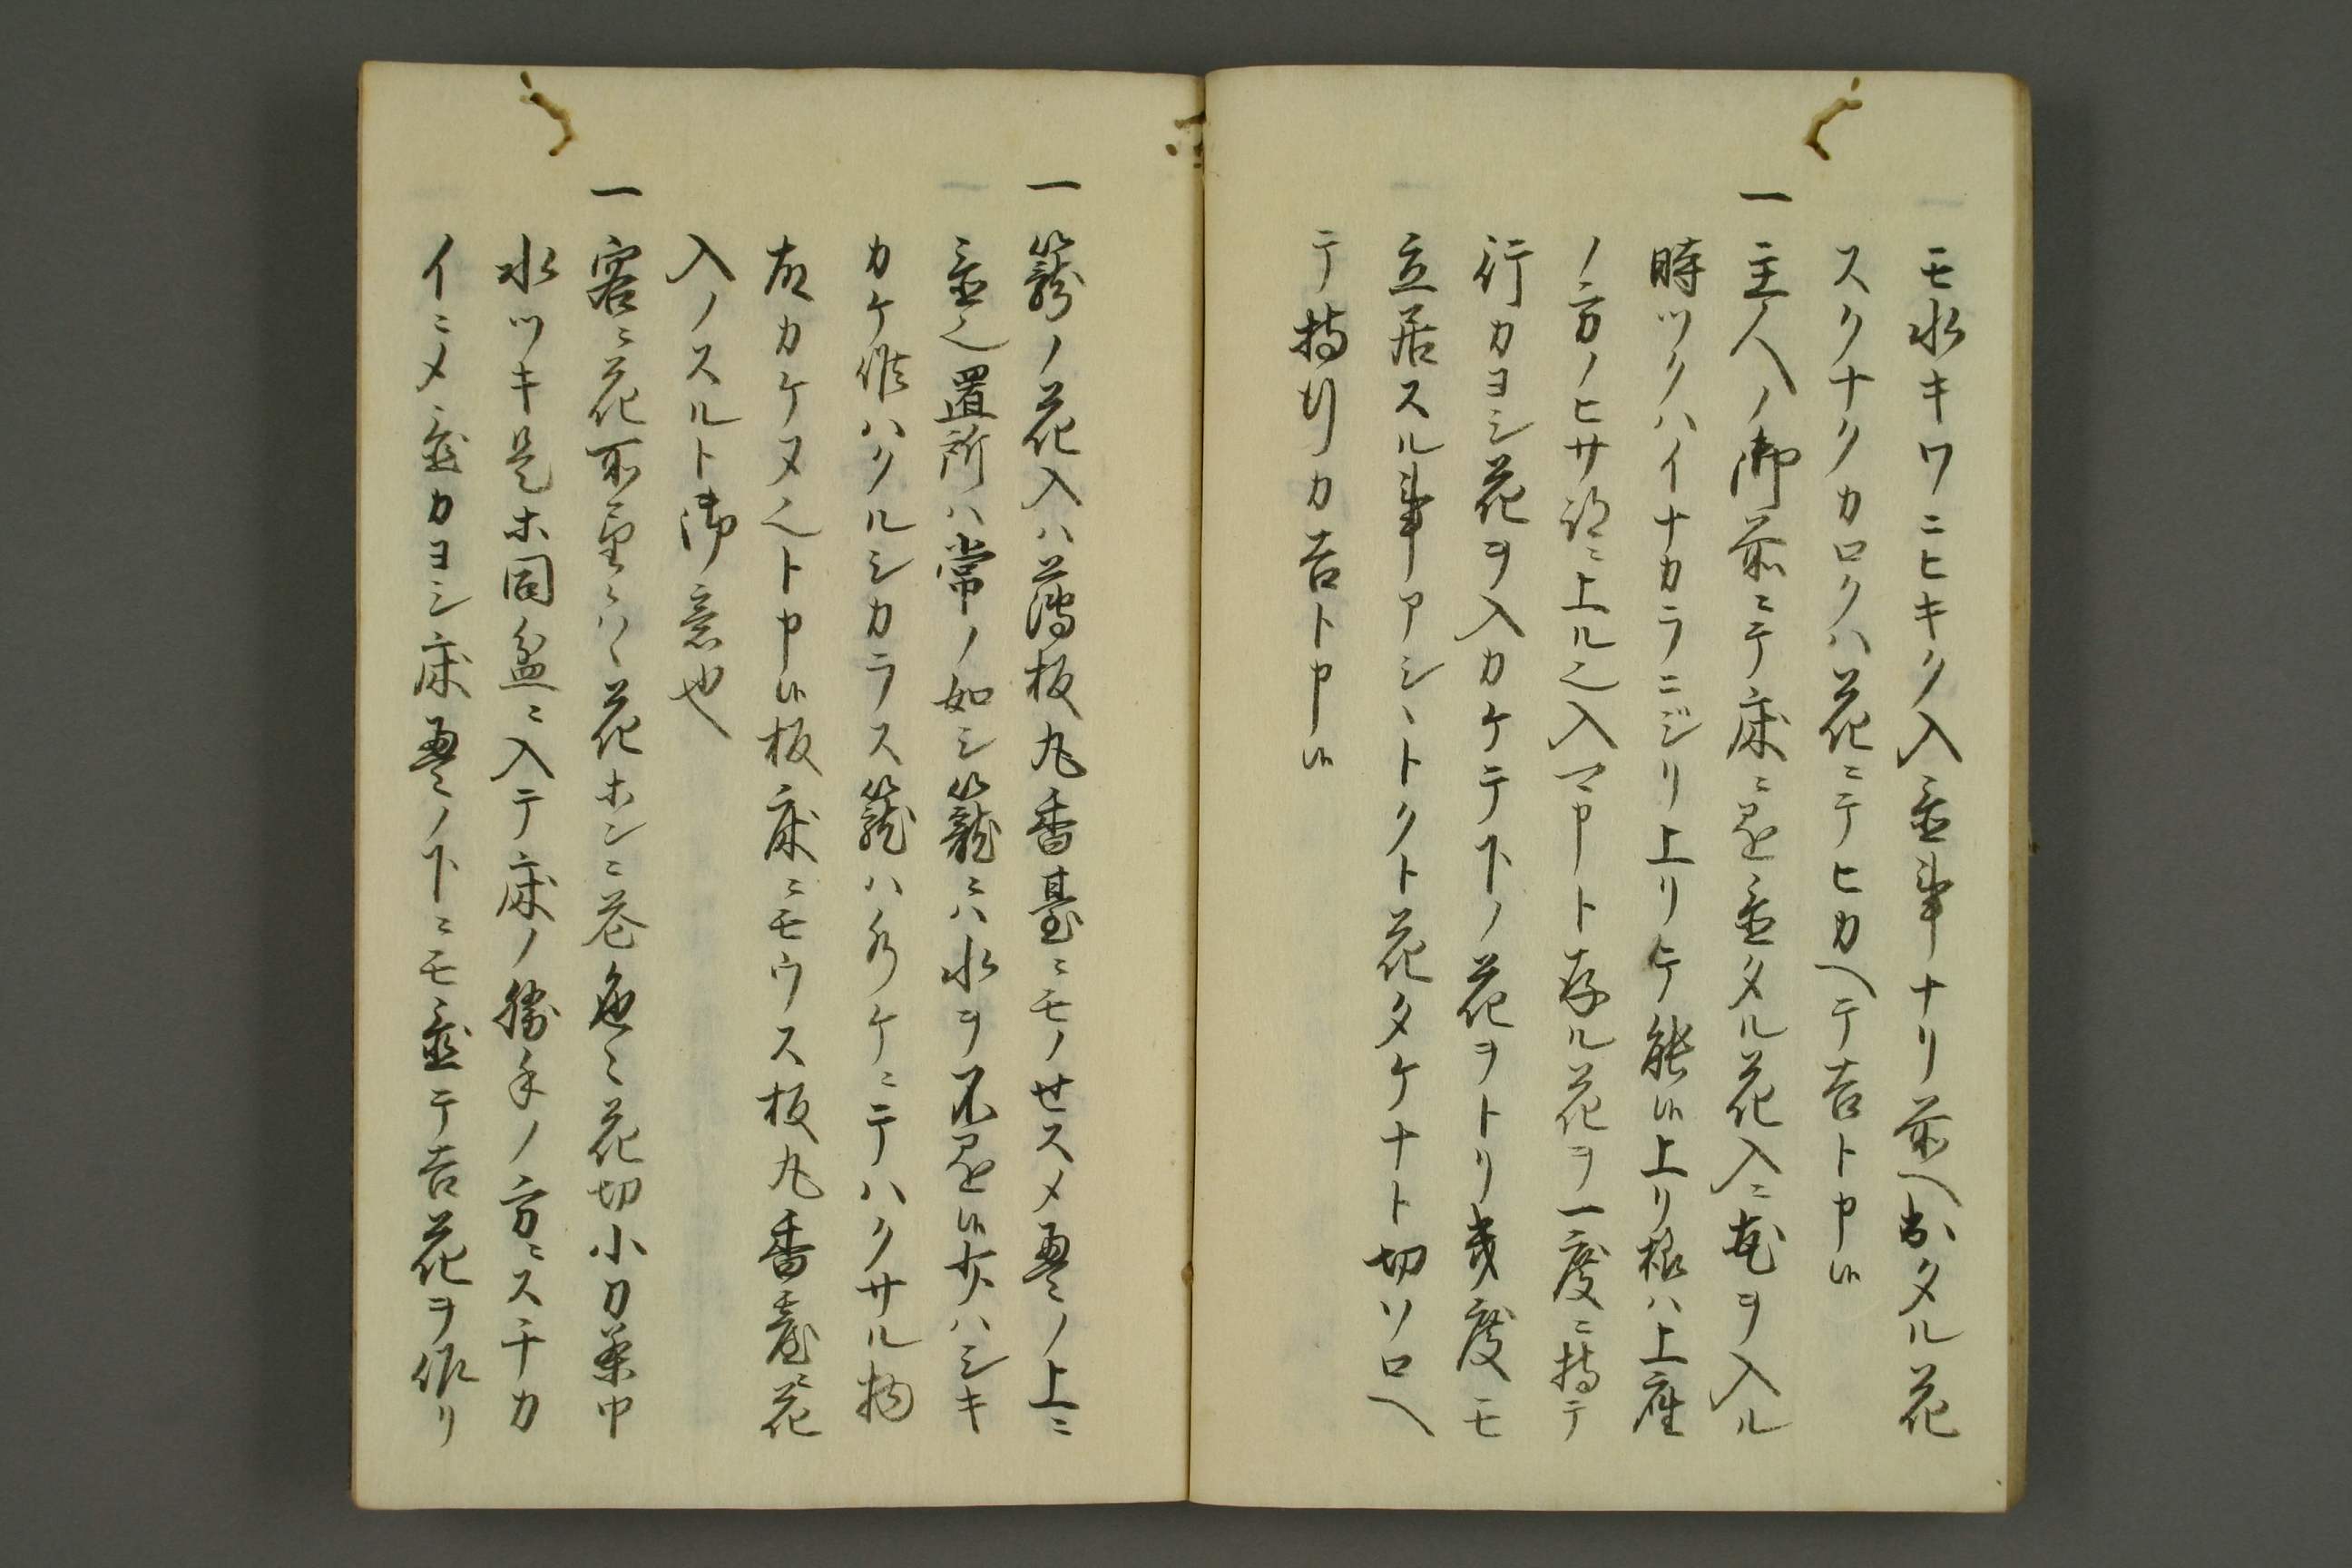 モ水キワニヒキク入置事ナリ前ヘ出タル花
スクナクカロクハ花ニテヒカヘテ吉ト申候
一主人ノ御前ニテ床ニ置タル花入ニ花ヲ入ル
時ツクハイナカラニジリ上リテ能候上リ様ハ上座
ノ方ノヒサ ニ上ル也入マアト存ル花ヲ一度ニ持テ
行カヨシ花ヲ入カケテ下ノ花ヲトリ幾度モ
立居スル事アシヽトクト花タケナト切ソロヘ
テ持行カ吉ト申候
一籠ノ花入ハ薄板丸香臺ニモノせスメ畳ノ上ニ
置也置所ハ常ノ如シ籠ニハ水ヲ不 候 ハシキ
カケ候ハクルシカラス籠ハ ケニテハクサル物
故カケヌ也ト申候板床ニモウス板丸香臺花
入ノスルト御意也
一客ニ花所望ニハ花ホンニ 花切小刀茶巾
水ツキ是ホ同盆ニ入テ床ノ勝手ノ方ニスチカ
イニメ置カヨシ床畳ノ下ニモ置テ吉花ヲ作リ